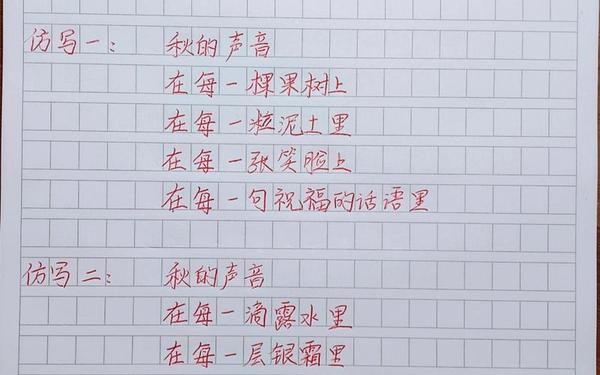 仿写一： 秋的声音
在每一棵果树上
在每一粒泥土里
在每一张笑脸上
在每一句祝福的话语里
仿写二： 秋的声音
在每一滴露水里
在每一层银霜里